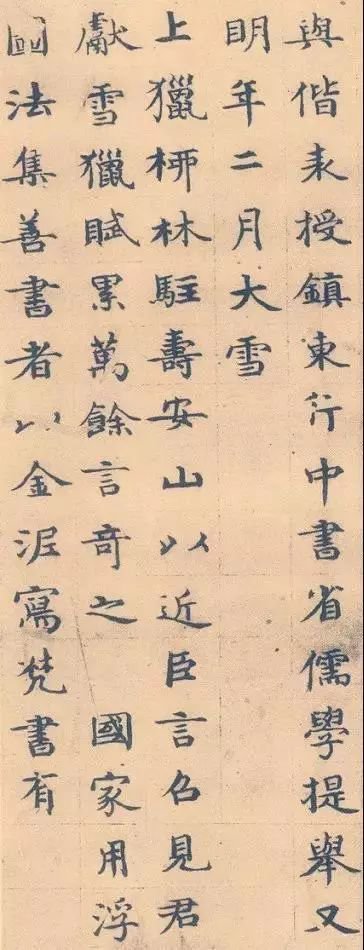 與偕来授鎮東行中書省儒學提舉又
明年二月大雪
上獵栁林駐壽安山以近臣言召見君
獻雪獵賦累萬餘言竒之 國家用浮
圖法集善書者以金泥寫梵書有